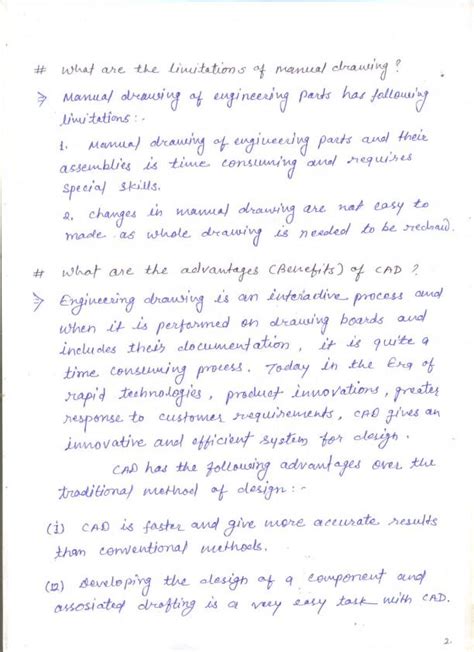 # What are the limitations of manual drawing?
⇒ Manual drawing of engineering parts has following
limitations:-
1. Manual drawing of engineering parts and their
assemblies is time consuming and requires
special skills.
2. changes in manual drawing are not easy to
made as whole drawing is needed to be redraw.
# What are the advantages (Benefits) of CAD?
⇒ Engineering drawing is an interactive process and
when it is performed on drawing boards and
includes their documentation, it is quite a
time consuming process. Today in the Era of
rapid technologies, product innovations, greater
response to customer requirements, CAD gives an
innovative and efficient system for design.
CAD has the following advantages over the
traditional method of design:-
(i) CAD is faster and give more accurate results
than conventional methods.
(ii) Developing the design of a component and
assosiated drafting is a very easy task with CAD.
2.